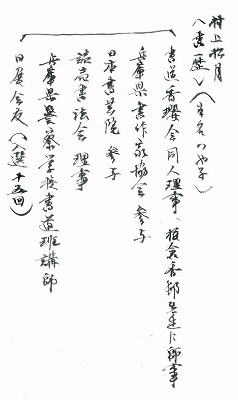 村上松月
〈書歴〉(本名 つや子)
書道香瓔会同人理事、板倉香邨先生に師事
兵庫県書作家協会 参与
日本書芸院 参与
読売書法会 理事
兵庫県警察学校書道班講師
日展会友(入選十五回)